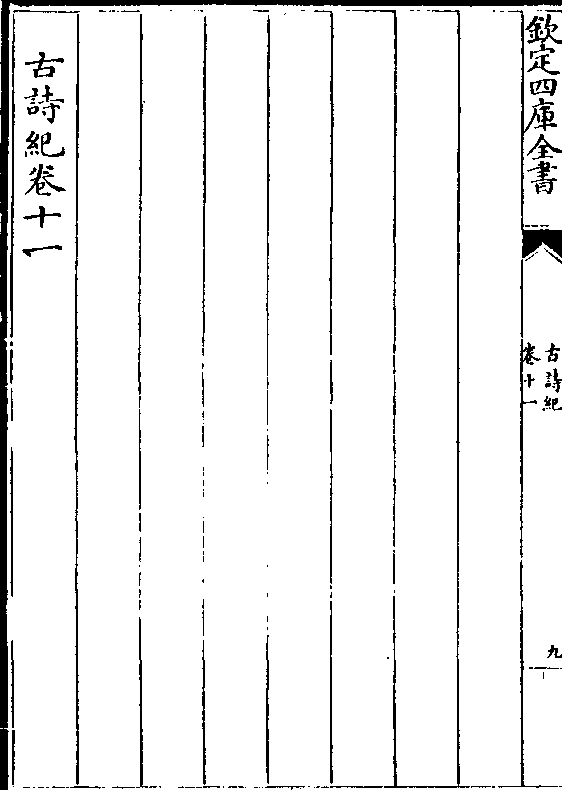 欽定四庫全書
古詩紀
卷十一
九
古詩紀卷十一